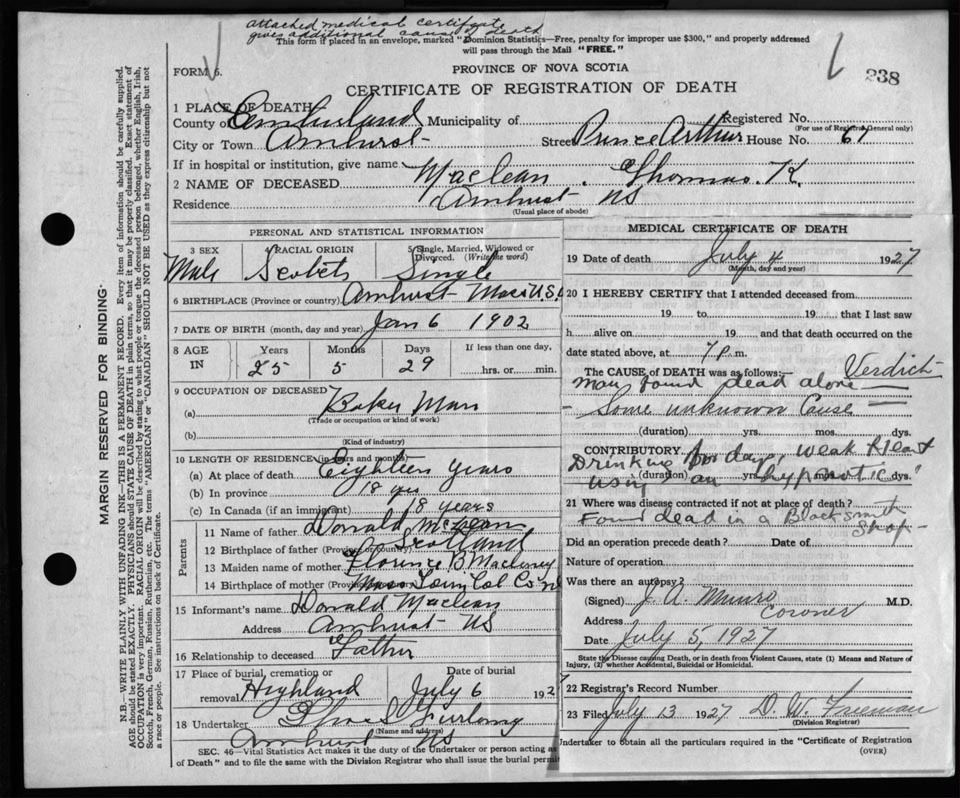 attached medical certifcate
gives additional cause of death
This form if placed in an envelope, marked "Dominion Statistics—Free, penalty for improper use $300," and properly addressed
will pass through the Mail "FREE."
FORM 6.
PROVINCE OF NOVA SCOTIA
238
CERTIFICATE OF REGISTRATION OF DEATH
1 PLACE OF DEATH
County of Cumberland Municipality of Registered No.
(For use of Registrar General only)
City or Town Amherst Street Prince Arthur House No. 61
If in hospital or institution, give name
2 NAME OF DECEASED Maclean. Thomas. K.
Residence Amherst NS
(Usual place of abode)
PERSONAL AND STATISTICAL INFORMATION
3 SEX 4 RACIAL ORIGIN 5 Single, Married, Widowed or Divorced. (Write the word)
Male Scotch Single
6 BIRTHPLACE (Province or country) Amherst Mass U.S.
7 DATE OF BIRTH (month, day and year) Jan 6 1902
8 AGE IN Years Months Days If less than one day,
25 5 29 hrs. or min.
9 OCCUPATION OF DECEASED
(a) Baker Man
(Trade or occupation or kind of work)
(b)
(Kind of industry)
10 LENGTH OF RESIDENCE (in years and months)
(a) At place of death Eighteen Years
(b) In province 18 yrs
(c) In Canada (if an immigrant) 18 years
Parents
11 Name of father Donald McLean
12 Birthplace of father (Province or country) Scotland
13 Maiden name of mother Florence B
14 Birthplace of mother (Province or country) Col Co
15 Informant's name Donald Maclean
Address Amherst NS
16 Relationship to deceased Father
17 Place of burial, cremation or removal Date of burial
Highland July 6 1927
18 Undertaker Furlong
(Name and address)
Amherst NS
SEC. 46—Vital Statistics Act makes it the duty of the Undertaker or person acting as
of Death" and to file the same with the Division Registrar who shall issue the burial permit
MEDICAL CERTIFICATE OF DEATH
19 Date of death July 4 1927
(Month, day and year)
20 I HEREBY CERTIFY that I attended deceased from
19 to 19 that I last saw
h alive on 19 and that death occurred on
date stated above, at 7 p.m.
The CAUSE OF DEATH was as follows:— Verdict
Man found dead alone
— Some unknown Cause —
(duration) yrs. mos. dys.
CONTRIBUTORY
Drinking for days, weak Heart
(duration) yrs. mos. dys.
using an "hypnotic"
21 Where was disease contracted if not at place of death?
Found dead in a Blacksmith Shop-
Did an operation precede death? Date of
Nature of operation
Was there an autopsy?
(Signed) J. A. Munro M.D.
Address Coroner
Date July 5, 1927
State the Disease causing Death, or in death from Violent Causes, state (1) Means and Nature of
Injury, (2) whether Accidental, Suicidal or Homicidal.
22 Registrar's Record Number
23 Filed July 13 1927 D. W. Freeman
(Division Registrar)
Undertaker to obtain all the particulars required in the "Certificate of Registration
(OVER)
MARGIN RESERVED FOR BINDING.
N.B.—WRITE PLAINLY WITH UNFADING INK—THIS IS A PERMANENT RECORD. Every item of information should be carefully supplied.
AGE should be stated EXACTLY. PHYSICIANS should STATE CAUSE OF DEATH in plain terms, so that it may be properly classified. Exact statement of
OCCUPATION is very important. RACIAL ORIGIN will be described by stating to what people or tongue the deceased person belonged, whether English, Irish,
Scotch, French, German, Russian, Ruthenian, etc. The terms "AMERICAN" or "CANADIAN" SHOULD NOT BE USED as they express citizenship but not
a race or people. See instructions on back of Certificate.